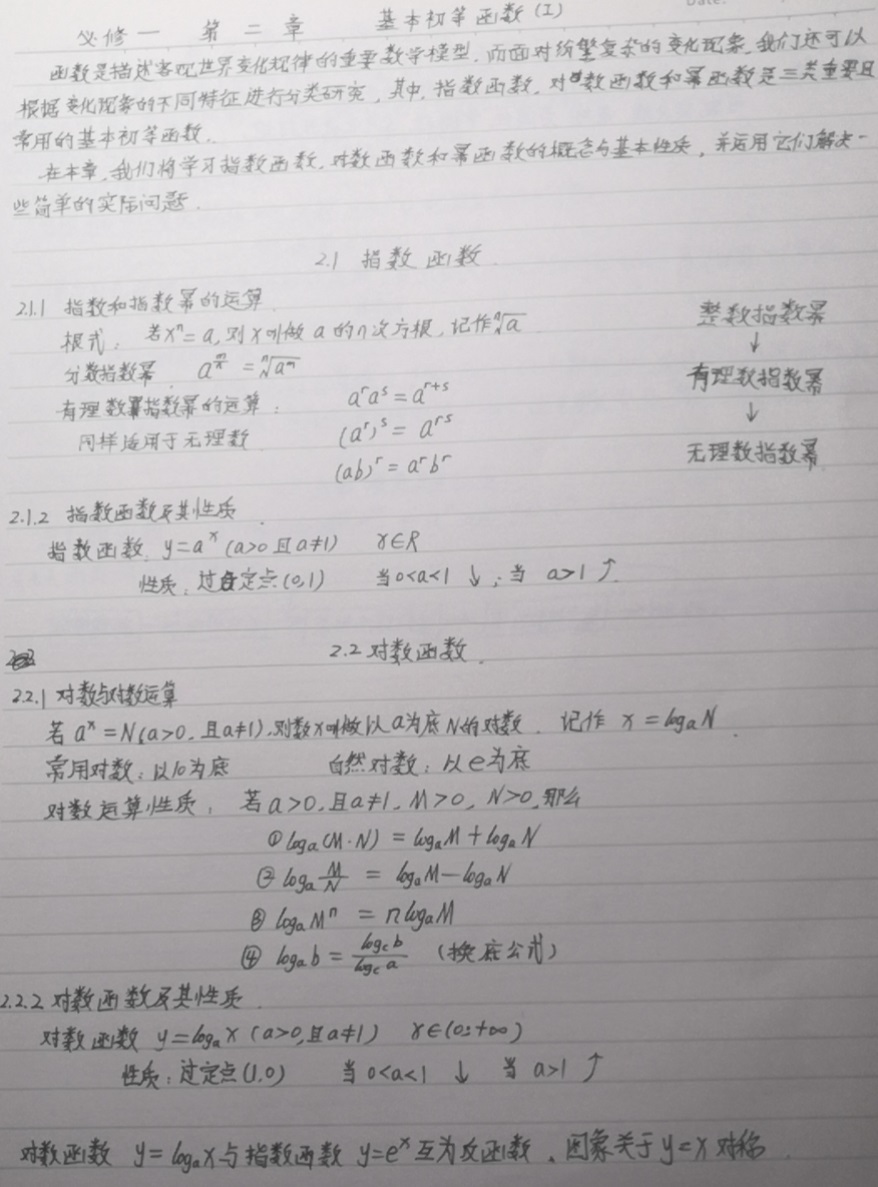 Date:
必修一 第二章 基本初等函数(I)
函数是描述客观世界变化规律的重要数学模型,而面对纷繁复杂的变化现象,我们还可以
根据变化现象的不同特征进行分类研究,其中,指数函数,对数函数和幂函数是三类重要且
常用的基本初等函数.
在本章,我们将学习指数函数,对数函数和幂函数的概念与基本性质,并运用它们解决一
些简单的实际问题.
2.1 指数函数
2.1.1 指数和指数幂的运算
根式: 若xⁿ=a,则x叫做a的n次方根,记作ⁿ√a
整数指数幂
↓
分数指数幂 a^(m/n) = ⁿ√(a^m)
有理数指数幂
有理数指数幂的运算: a^r a^s = a^(r+s)
↓
同样适用于无理数 (a^r)^s = a^(rs)
无理数指数幂
(ab)^r = a^r b^r
2.1.2 指数函数及其性质
指数函数 y=a^x (a>0且a≠1) x∈R
性质: 过定点(0,1) 当0<a<1 ↓; 当 a>1 ↑
2.2 对数函数
2.2.1 对数与对数运算
若a^x=N(a>0,且a≠1),则数x叫做以a为底N的对数. 记作 x=logₐN
常用对数: 以10为底 自然对数: 以e为底
对数运算性质: 若a>0,且a≠1,M>0,N>0,那么
① logₐ(M·N) = logₐM + logₐN
② logₐ(M/N) = logₐM - logₐN
③ logₐMⁿ = n logₐM
④ logₐb = log_c b / log_c a (换底公式)
2.2.2 对数函数及其性质
对数函数 y=logₐx (a>0,且a≠1) x∈(0,+∞)
性质: 过定点(1,0) 当0<a<1 ↓ 当 a>1 ↑
对数函数 y=logₐx与指数函数 y=e^x互为反函数,图象关于y=x对称